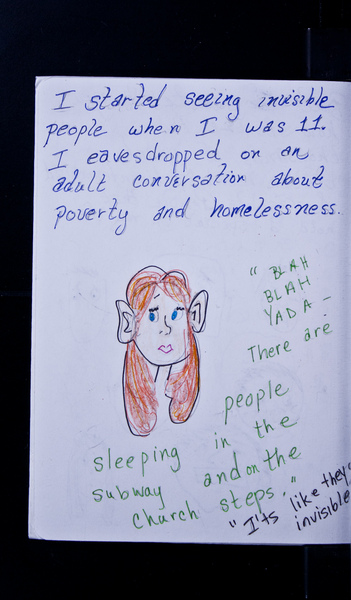 I started seeing invisible
people when I was 11.
I eavesdropped on an
adult conversation about
poverty and homelessness.
"BLAH
BLAH
YADA –
There are
people
sleeping in the
subway and on the
church steps."
"I'ts like they'
invisible